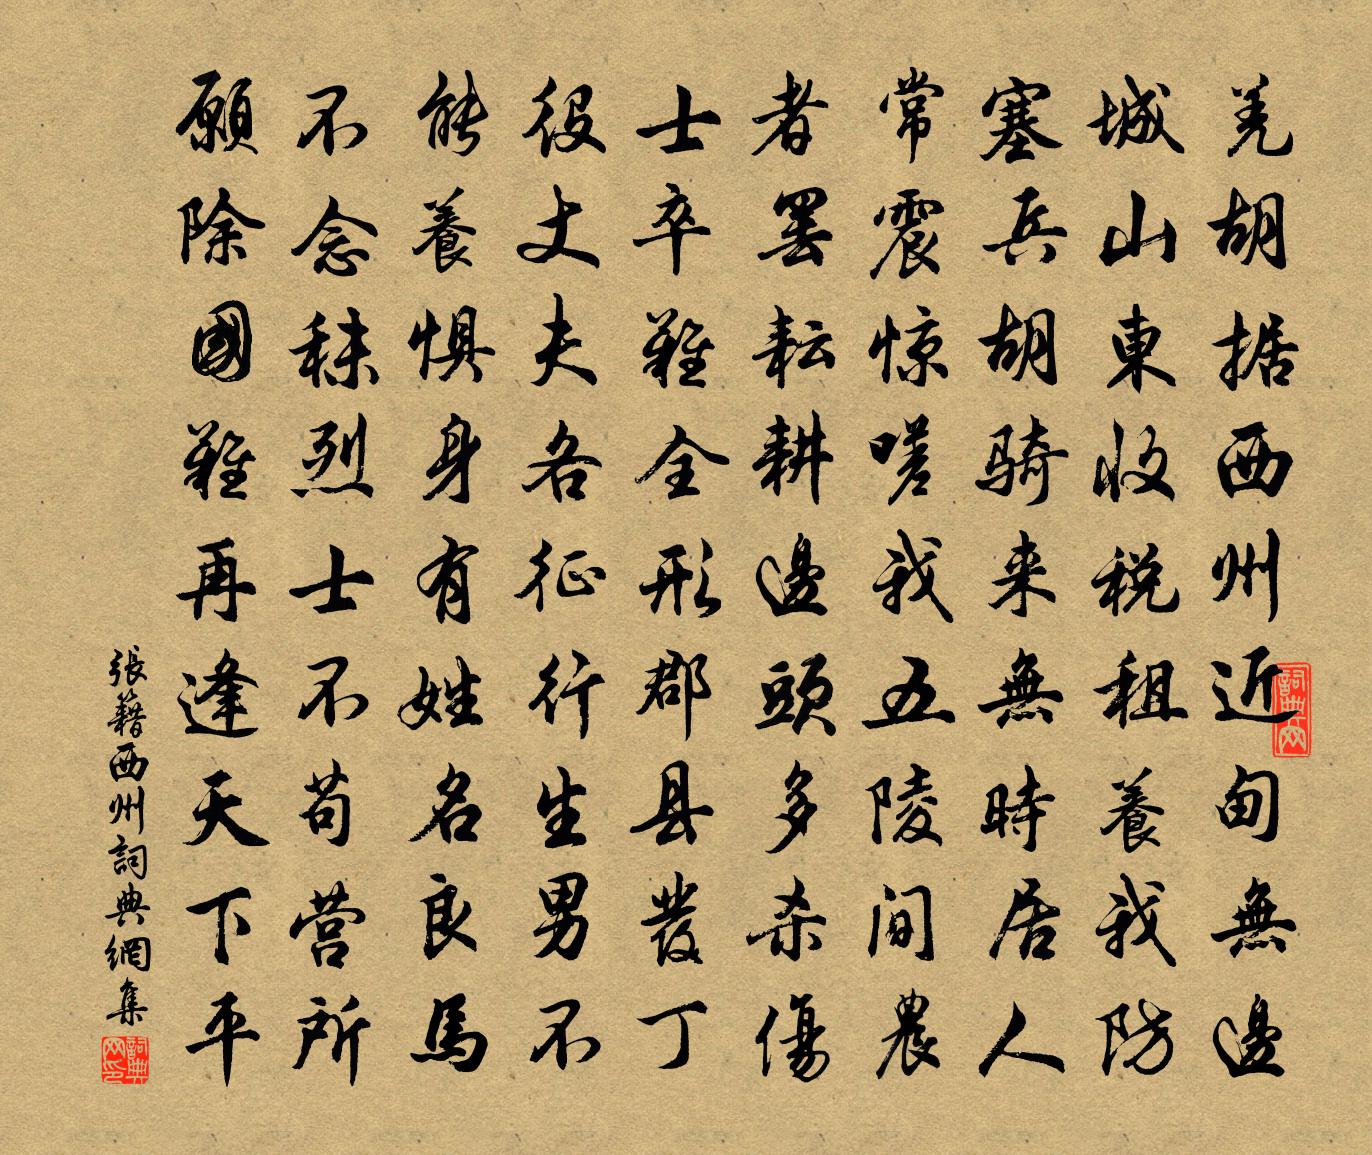 羌胡据西州近甸無邊
城山東收税租養我防
塞兵胡骑来無時居人
常震惊嗟我五陵间農
者罢耘耕邊頭多杀傷
士卒難全形郡县發丁
役丈夫各征行生男不
能養惧身有姓名良馬
不念秣烈士不苟营所
願除國難再逢天下平
張籍西州詞典網集
詞典网
詞典网印